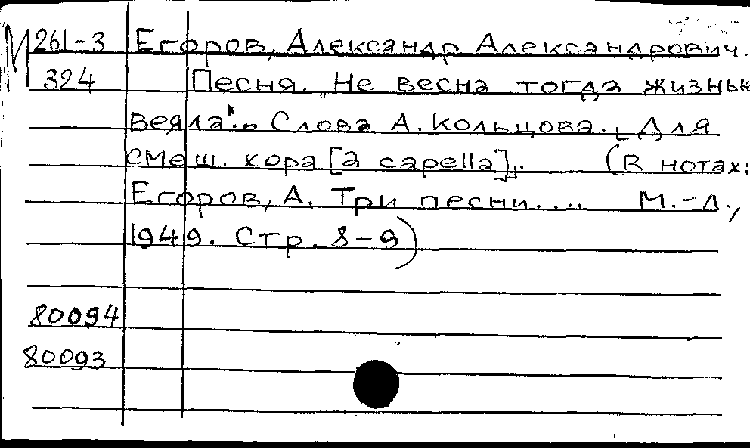 М 261-3 Егоров, Александр Александрович.
324 Песня. Не весна тогда жизнью
веяла... Слова А. Кольцова. Для
смеш. хора [a capella]. (В нотах:
Егоров, А. Три песни.... М.-Л.,
1949. Стр. 8-9)
80094
80093